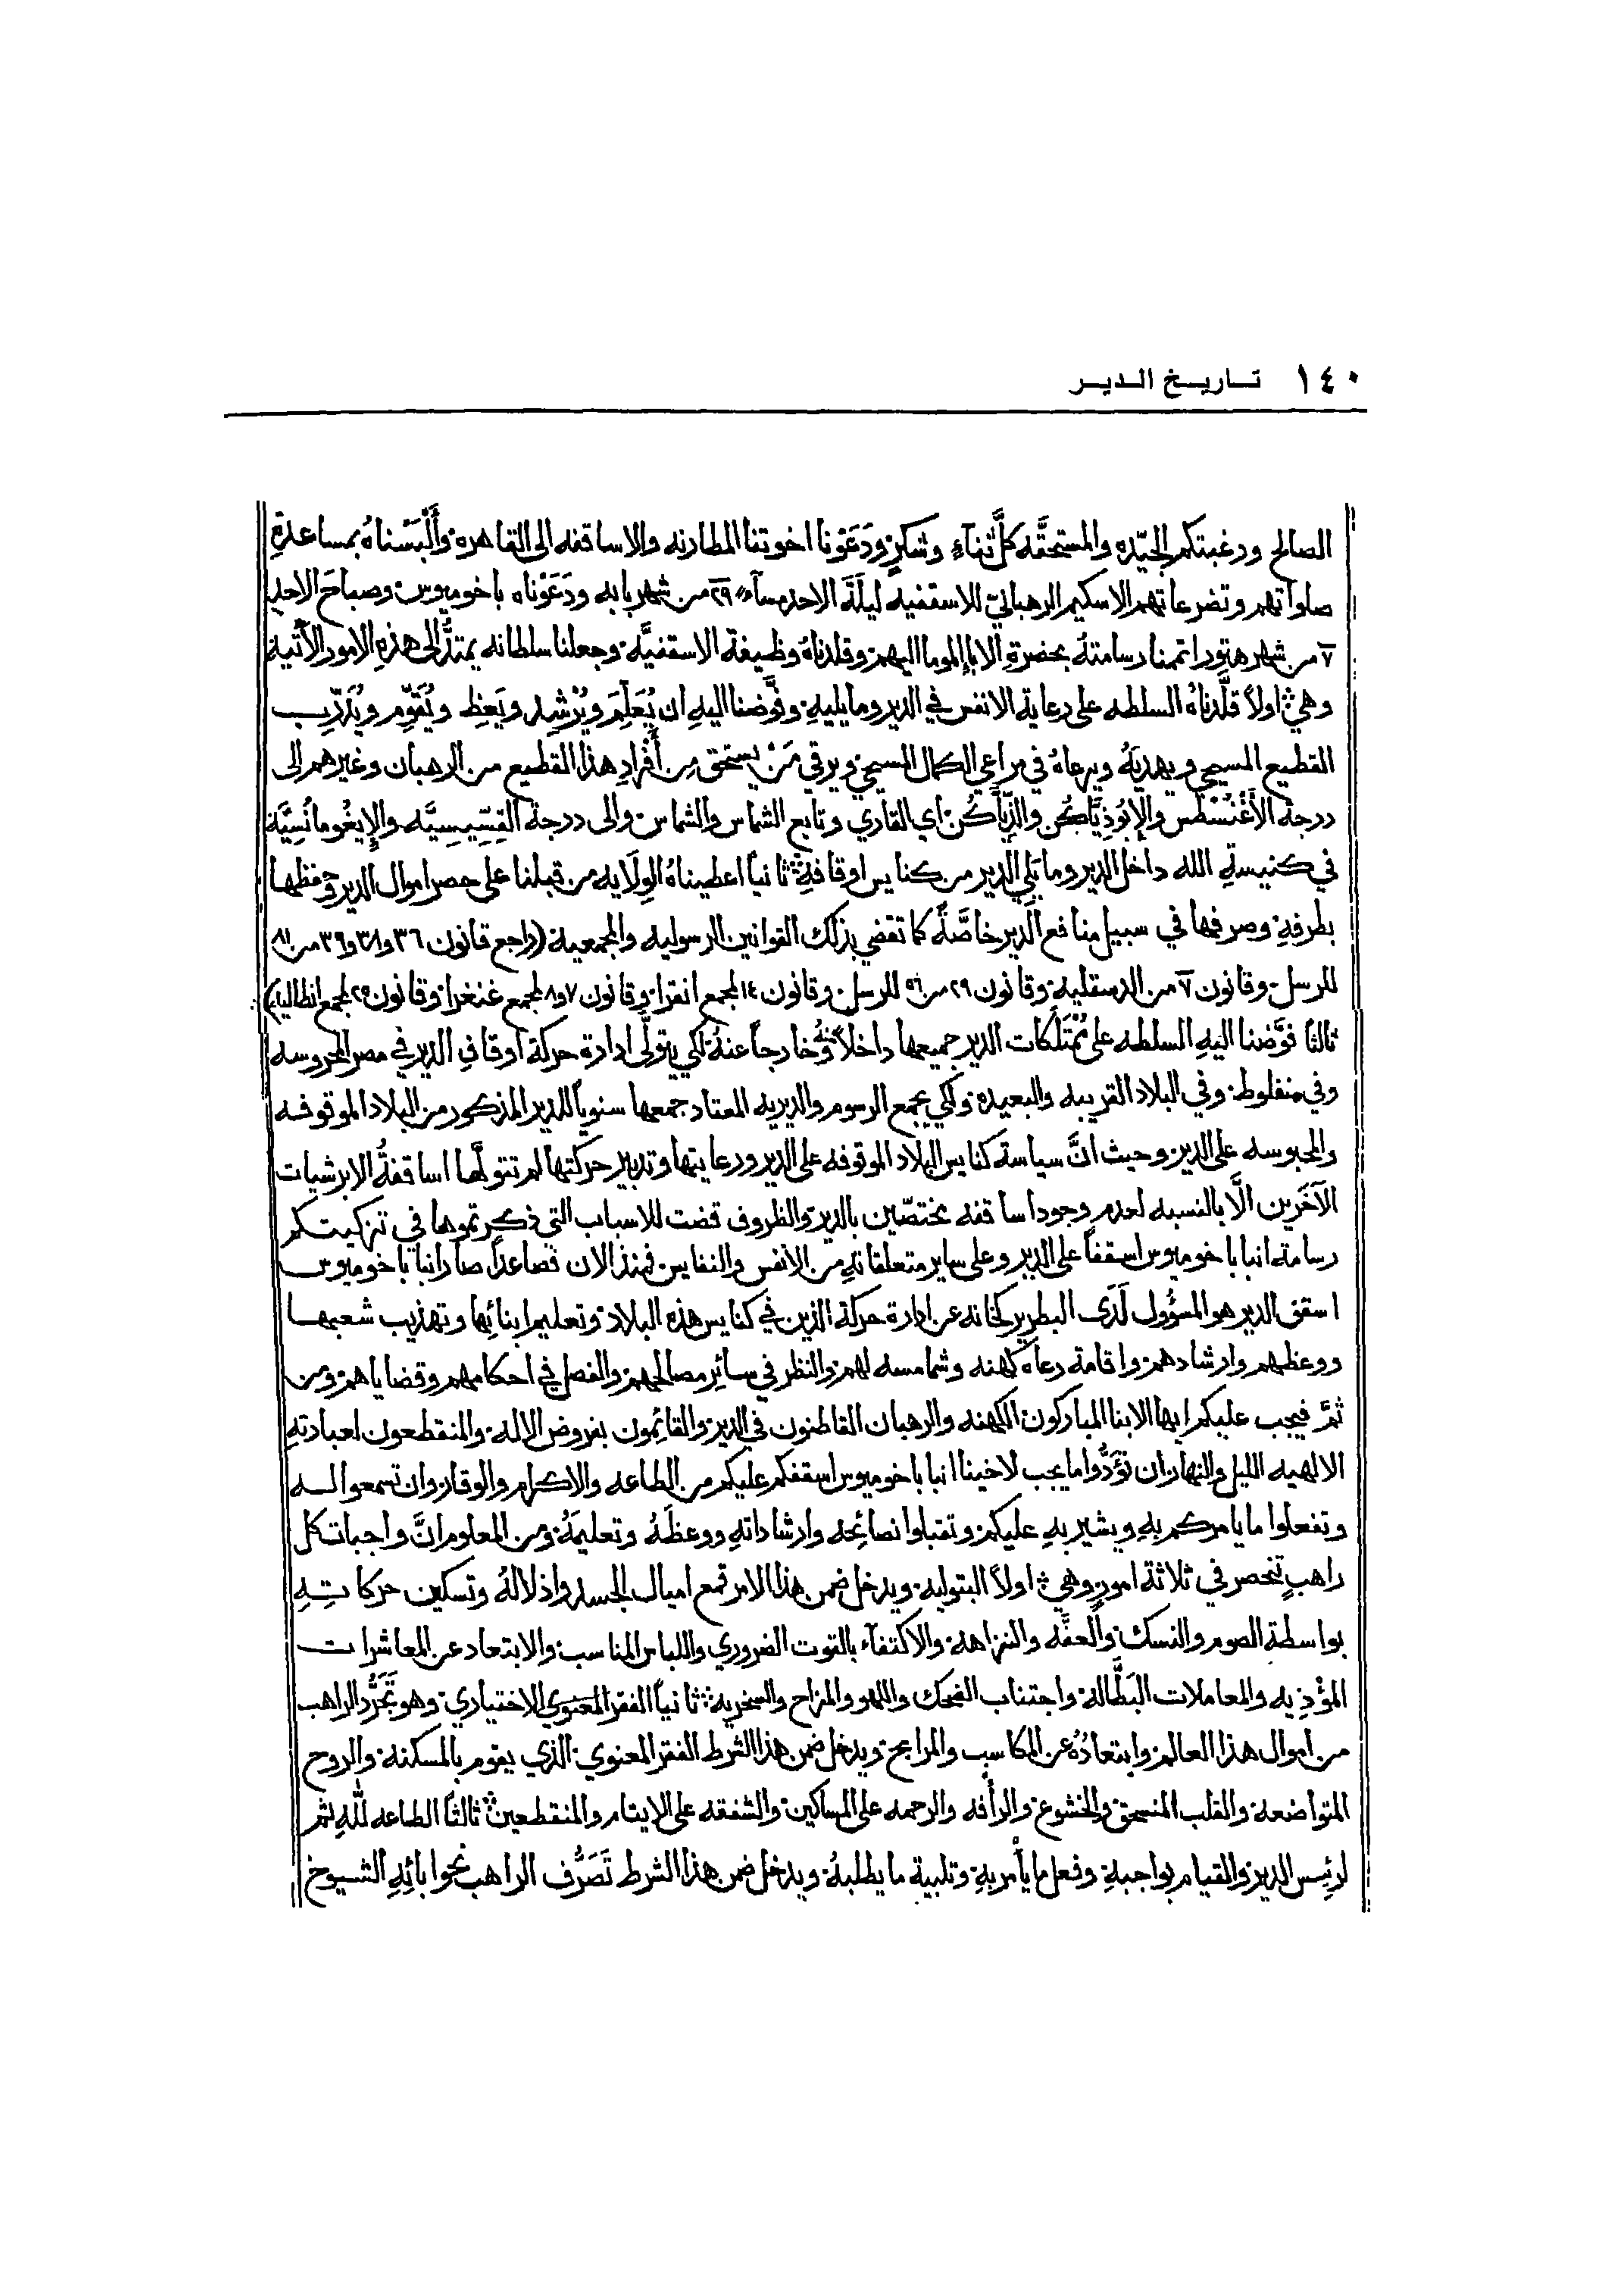 ١٤٠ تاريخ الدير
الصالح ورغبتكم الجيّده والمستحقّه كلَّ ثناءٍ وشكرٍ ودَعَوْنا اخوتنا المطارنه والاساقفه الى القاهرة وأَلْبَسْناهُ بمساعدةِ
صلواتهم وتضرعاتهم الاسكيم الرهبانيّ للاسقفيه ليلَةَ الاحد مسآء ٢٩ من شهر بابه ودَعَوْناه باخوميوس وصباحَ الاحد
٧ من شهر هتور اتممنا رسامتهُ بحضرةِ الابا الموما اليهم وقلدناهُ وظيفة الاسقفيَّه وجعلنا سلطانه يمتدُّ الى هذهِ الامور الآتية
وهي اولاً قلَّدناهُ السلطه على رعاية الانفس في الدير وما يليهِ وفوَّضنا اليهِ ان يُعَلِّمَ ويُرْشِد ويَعِظ ويُقَوِّم ويُدَرِّب
القطيع المسيحي ويهديَهُ ويرعاهُ في مراعي الكمال المسيحي ويرقي مَنْ يستحق مِن أَفْرادِ هذا القطيع من الرهبان وغيرهم الى
درجة الأَغْنُسْطُس والإِبُوذِيَّاكُن والدِّيَاكُن اي القاري وتابع الشماس والشماس والى درجة القِسِّيسِيَّه والإِيغُومانُسِيَّة
في كنيسةِ الله داخل الدير وما يَلِي الدير من كنايس اوقافهِ ثانياً اعطيناهُ الوِلَايه من قبلنا على حصر اموال الدير وحفظها
بطرفهِ وصرفها في سبيل منافع الدير خاصَّةً كما تقضي بذلك القوانين الرسوليه والمجمعية (راجع قانون ٣٦ و٣٨ و٣٩ من ٨١
للرسل وقانون ٧ من الدسقليه وقانون ٢٩ من ٥٦ للرسل وقانون ١٤ لمجمع انقرا وقانون ٧ و٨ لمجمع غنغرا وقانون ٢٥ لمجمع انطاكيا)
ثالثاً فوَّضنا اليهِ السلطه على مُمْتَلَكات الدير جميعها داخلاً منهُ وخارجاً عنهُ لكي يتولَّى ادارة حركة اوقافِ الدير في مصر المحروسه
وفي منفلوط وفي البلاد القريبه والبعيده ولكي يجمع الرسوم والديريه المعتاد جمعها سنوياً للدير المذكور من البلاد الموقوفه
والمحبوسه على الدير وحيث انَّ سياسة كنايس البلاد الموقوفه على الدير ورعايتها وتدبير حركتها لم تتولَّها اساقفةُ الابرشيات
الآخَرين الَّا بالنسبه لعدم وجود اساقفه مختصّين بالدير والظروف قضت للاسباب التي ذكرتموها في تزكيتكم
رسامة انبا باخوميوس اسقفاً على الدير وعلى ساير متعلقاتهِ من الانفس والنفايس فمنذ الان فصاعداً صار انبا باخوميوس
اسقف الدير هو المسؤول لَدَى البطريركخانه عن ادارة حركة الدين في كنايس هذه البلاد وتعليم ابنائها وتهذيب شعبها
ووعظهم وارشادهم واقامة رعاه كهنه وشمامسه لهم والنظر في سائر مصالحهم والفصل في احكامهم وقضاياهم ومن
ثمَّ فيجب عليكم ايها الابنا المباركون الكهنه والرهبان القاطنون في الدير والقائِمون بفروض الاله والمنقطعون لعبادتهِ
الالهيه الليل والنهار ان تؤَدُّوا ما يجب لاخينا انبا باخوميوس اسقفكم عليكم من الطاعه والاكرام والوقار وان تسمعوا له
وتفعلوا ما يامركم بهِ ويشير بهِ عليكم وتقبلوا نصائِحه وارشاداتهِ ووعظَهُ وتعليمَهُ ومن المعلوم انَّ واجبات كل
راهبٍ تنحصر في ثلاثة امورٍ وهي اولاً البتوليه ويدخل ضمن هذا الامر قمع اميال الجسد واذلالهُ وتسكين حركاتِهِ
بواسطة الصوم والنسك والعفَّه والنزاهة والاكتفآء بالقوت الضروري واللباس المناسب والابتعاد عن المعاشرات
المؤذيه والمعاملات البَطَّاله واجتناب الضحك واللهو والمزاح والسخرية ثانياً الفقر المعنوي الاختياري وهو تَجَرُّد الراهب
من اموال هذا العالم وابتعادُهُ عن المكاسب والمرابح ويدخل ضمن هذا الشرط الفقر المعنوي الذي يقوم بالمسكنة والروح
المتواضعة والقلب المنسحق والخشوع والرأفه والرحمه على المساكين والشفقه على الايتام والمنقطعين ثالثاً الطاعه للهِ ثم
لرئيس الدير والقيام بواجبهِ وفعل ما يأمر بهِ وتلبية ما يطلبهُ ويدخل ضمن هذا الشرط تَصَرُّف الراهب نحو ابائِهِ الشيوخ